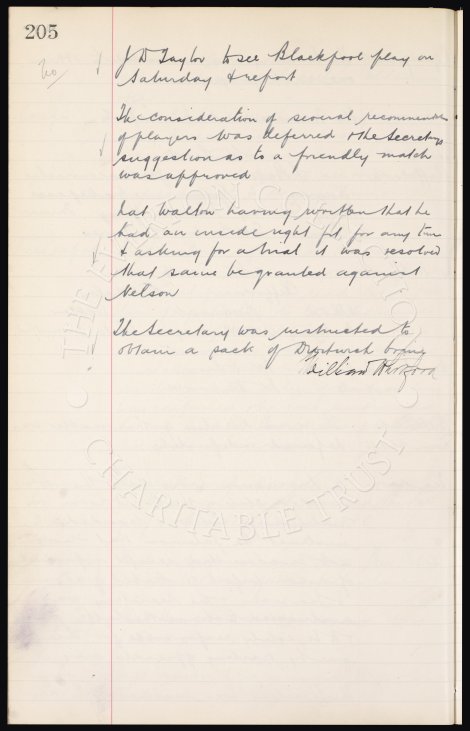 205
No
J D Taylor to see Blackpool play on
Saturday & report
The consideration of several recommendations
of players was deferred & the Secretary's
suggestion as to a friendly match
was approved
Nat Walton having written that he
had an inside right fit for any team
& asking for a trial it was resolved
that same be granted against
Nelson
The Secretary was instructed to
obtain a pack of Droitwich brine
William
THE FENTON COLLECTION
CHARITABLE TRUST